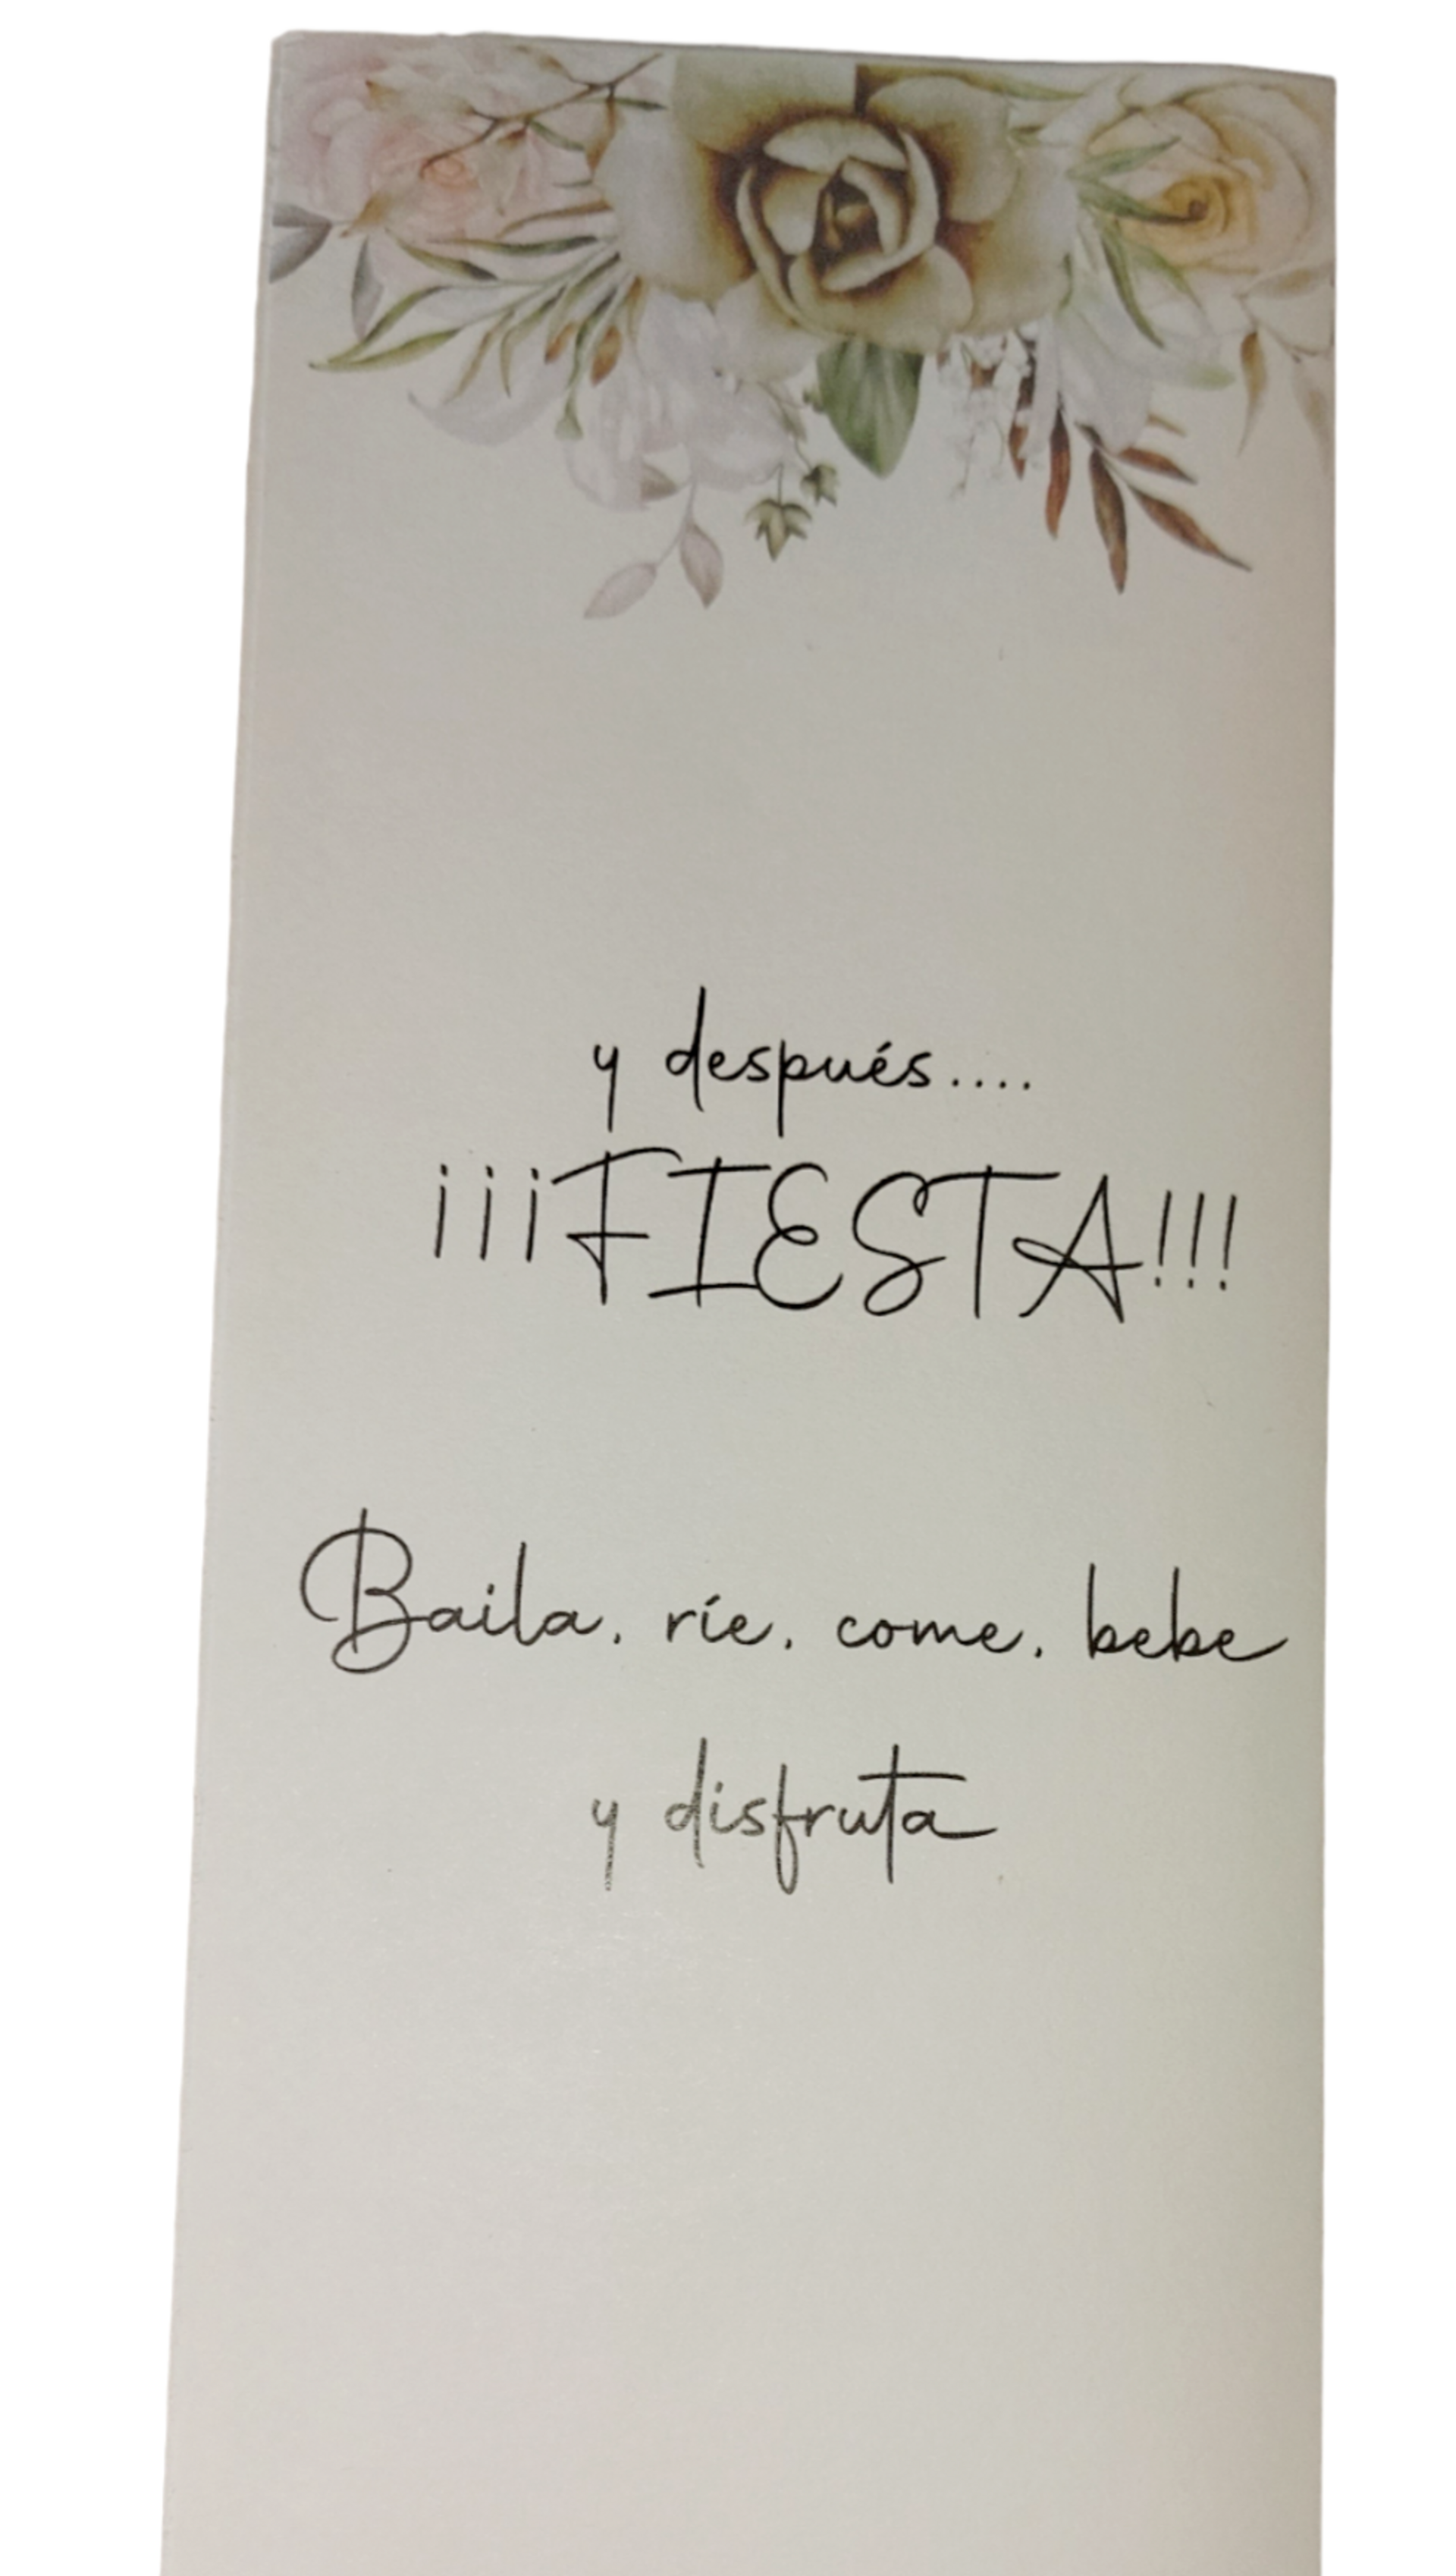 y después....
¡¡¡FIESTA!!!
Baila, ríe, come, bebe
y disfruta